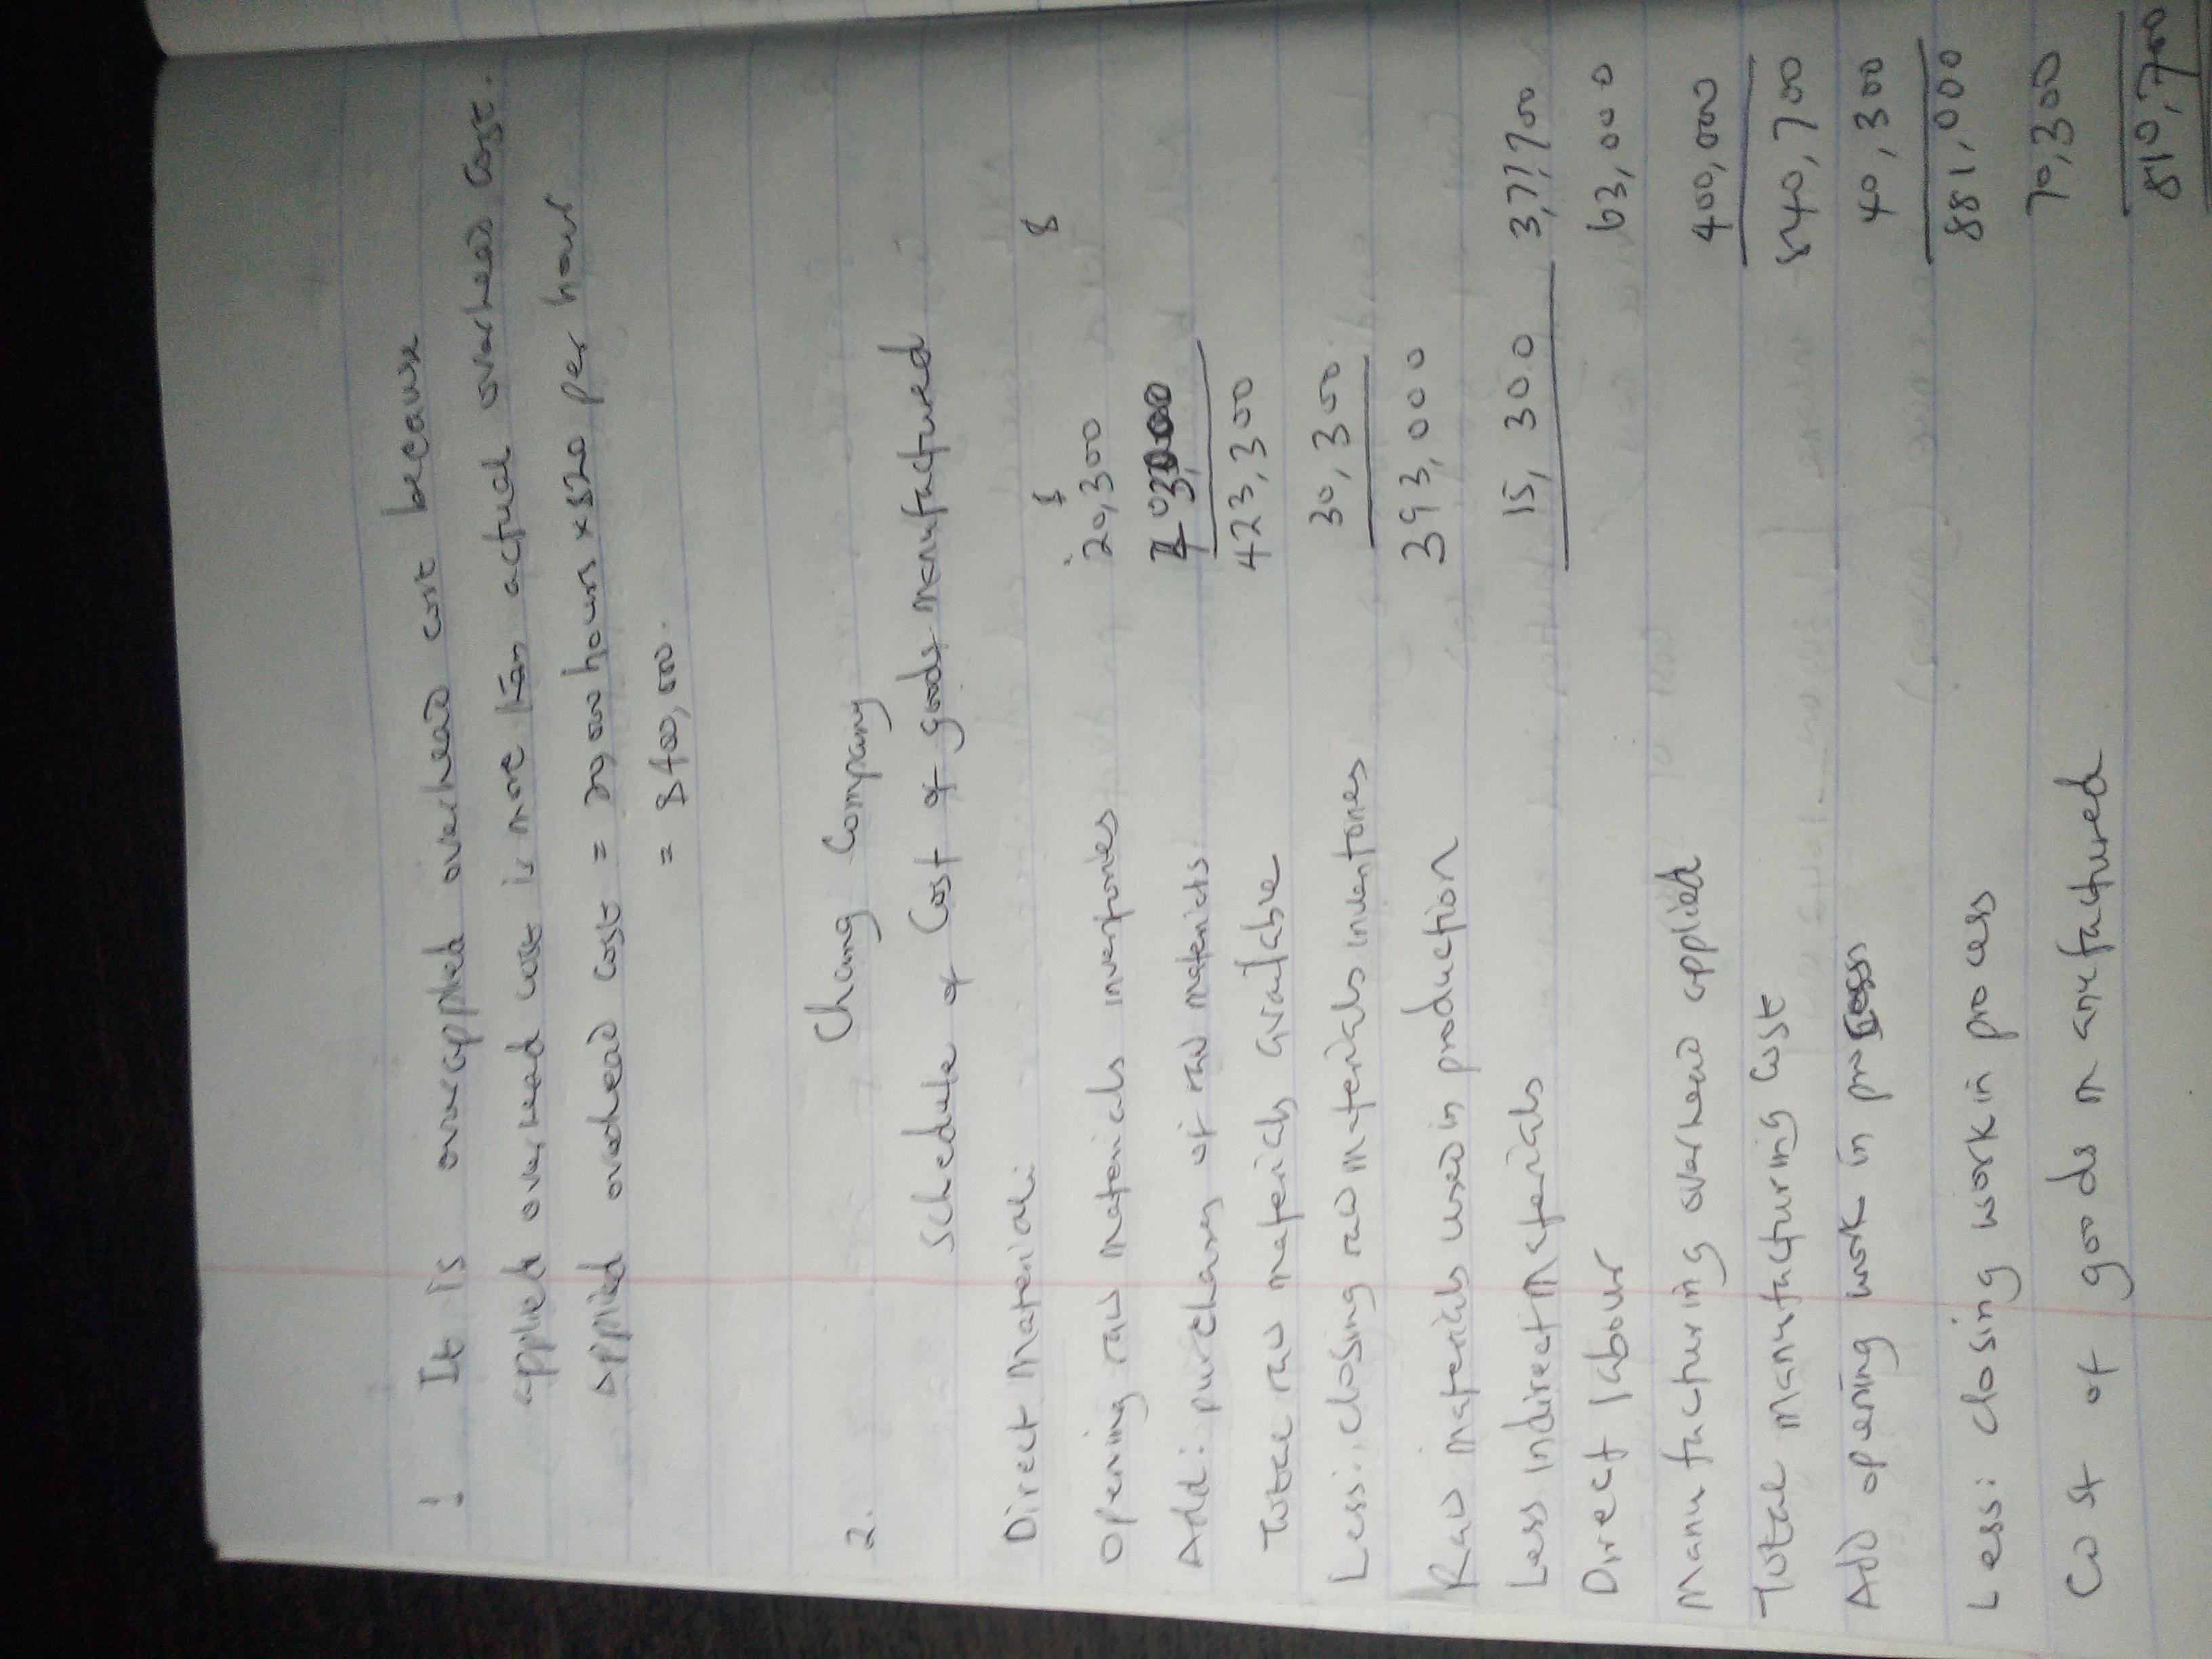 1 It is overapplied overhead cost because
applied overhead cost is more than actual overhead cost.
applied overhead cost = 20,000 hours x $20 per hour
= $400,000.
2. Chang Company
Schedule of Cost of goods manufactured
Direct Materials: $ $
Opening raw materials inventories 20,300
Add: purchases of raw materials 403,000
Total raw materials available 423,300
Less: closing raw materials inventories 30,300
Raw materials used in production 393,000
Less indirect materials 15,300 377,700
Direct labour 63,000
Manufacturing overhead applied 400,000
Total manufacturing cost 840,700
Add opening work in process 40,300
881,000
Less: closing work in process 70,300
Cost of goods manufactured 810,700